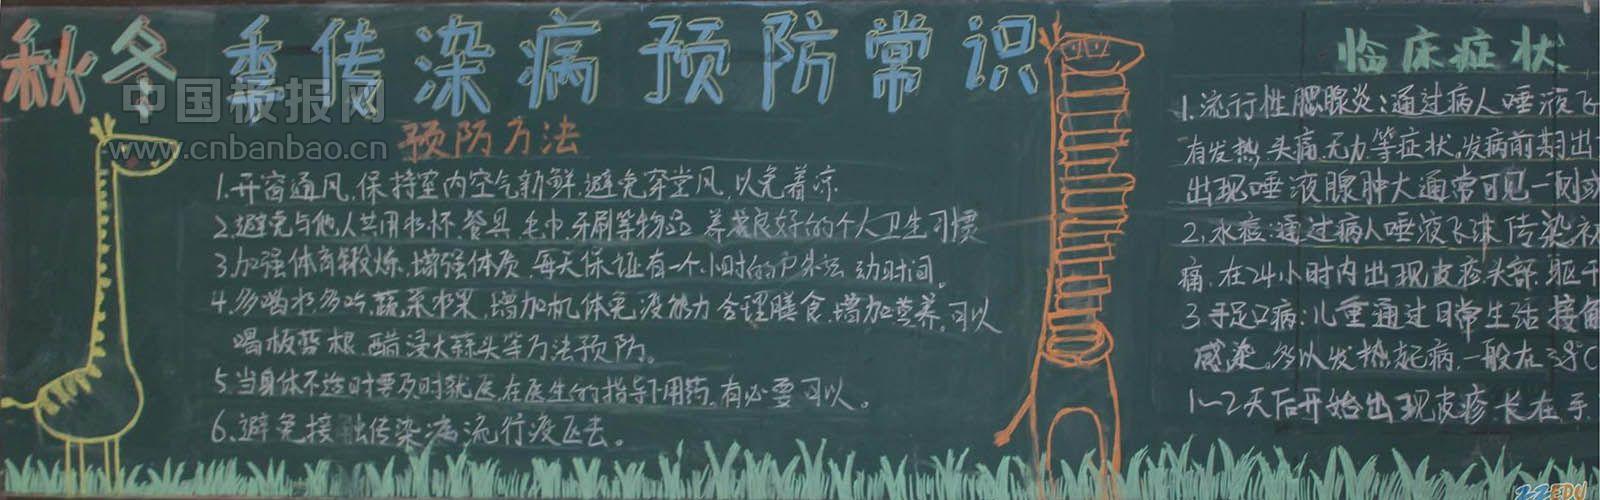 秋冬季传染病预防常识
中国板报网
www.cnbanbao.cn
预防方法
1.开窗通风,保持室内空气新鲜,避免穿堂风,以免着凉.
2.避免与他人共用水杯.餐具.毛巾.牙刷等物品 养成良好的个人卫生习惯
3.加强体育锻炼.增强体质.每天保证有一个小时的户外活动时间。
4.多喝水多吃蔬菜水果,增加机体免疫能力 合理膳食,增加营养,可以
喝板蓝根.醋浸大蒜头等方法预防。
5.当身体不适时要及时就医,在医生的指导下用药,有必要可以。
6.避免接触传染病流行疫区去。
临床症状
1.流行性腮腺炎:通过病人唾液飞
有发热.头痛.无力等症状,发病前期出
出现唾液腺肿大通常可见一侧或
2.水痘:通过病人唾液飞沫传染初
痛.在24小时内出现皮疹头部.躯干
3.手足口病:儿童通过日常生活接触
感染,多以发热起病,一般在38℃
1~2天后开始出现皮疹长在手.